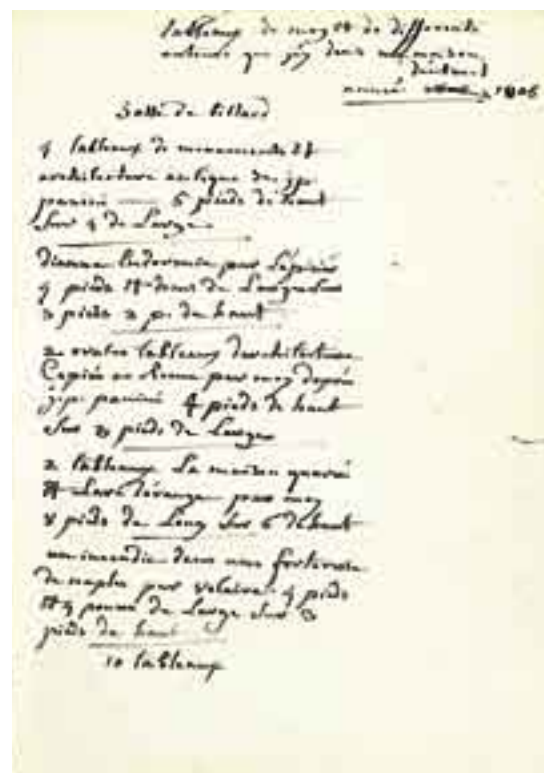 tableaux de moy et de differents
auteurs que j'ay dans ma maison
année 1806
Salle de billard
4 tableaux de monuments et
architecture antique de j.p.
panini — 5 pieds de haut
sur 4 de Large
dianne Endormie par
4 pieds et demi de Large sur
3 pieds 2 p. de haut
2 ovales tableaux d'architecture
Copiés a Rome par moy d'après
j.p. panini 4 pieds de haut
sur 3 pieds de Large
2 tableaux La maison quarré
et L'arc d'orange par moy
8 pieds de Long sur 6 de haut
un incendie dans une forteresse
de naples par volaire 4 pieds
et 4 pouces de Large sur 3
pieds de haut
10 tableaux